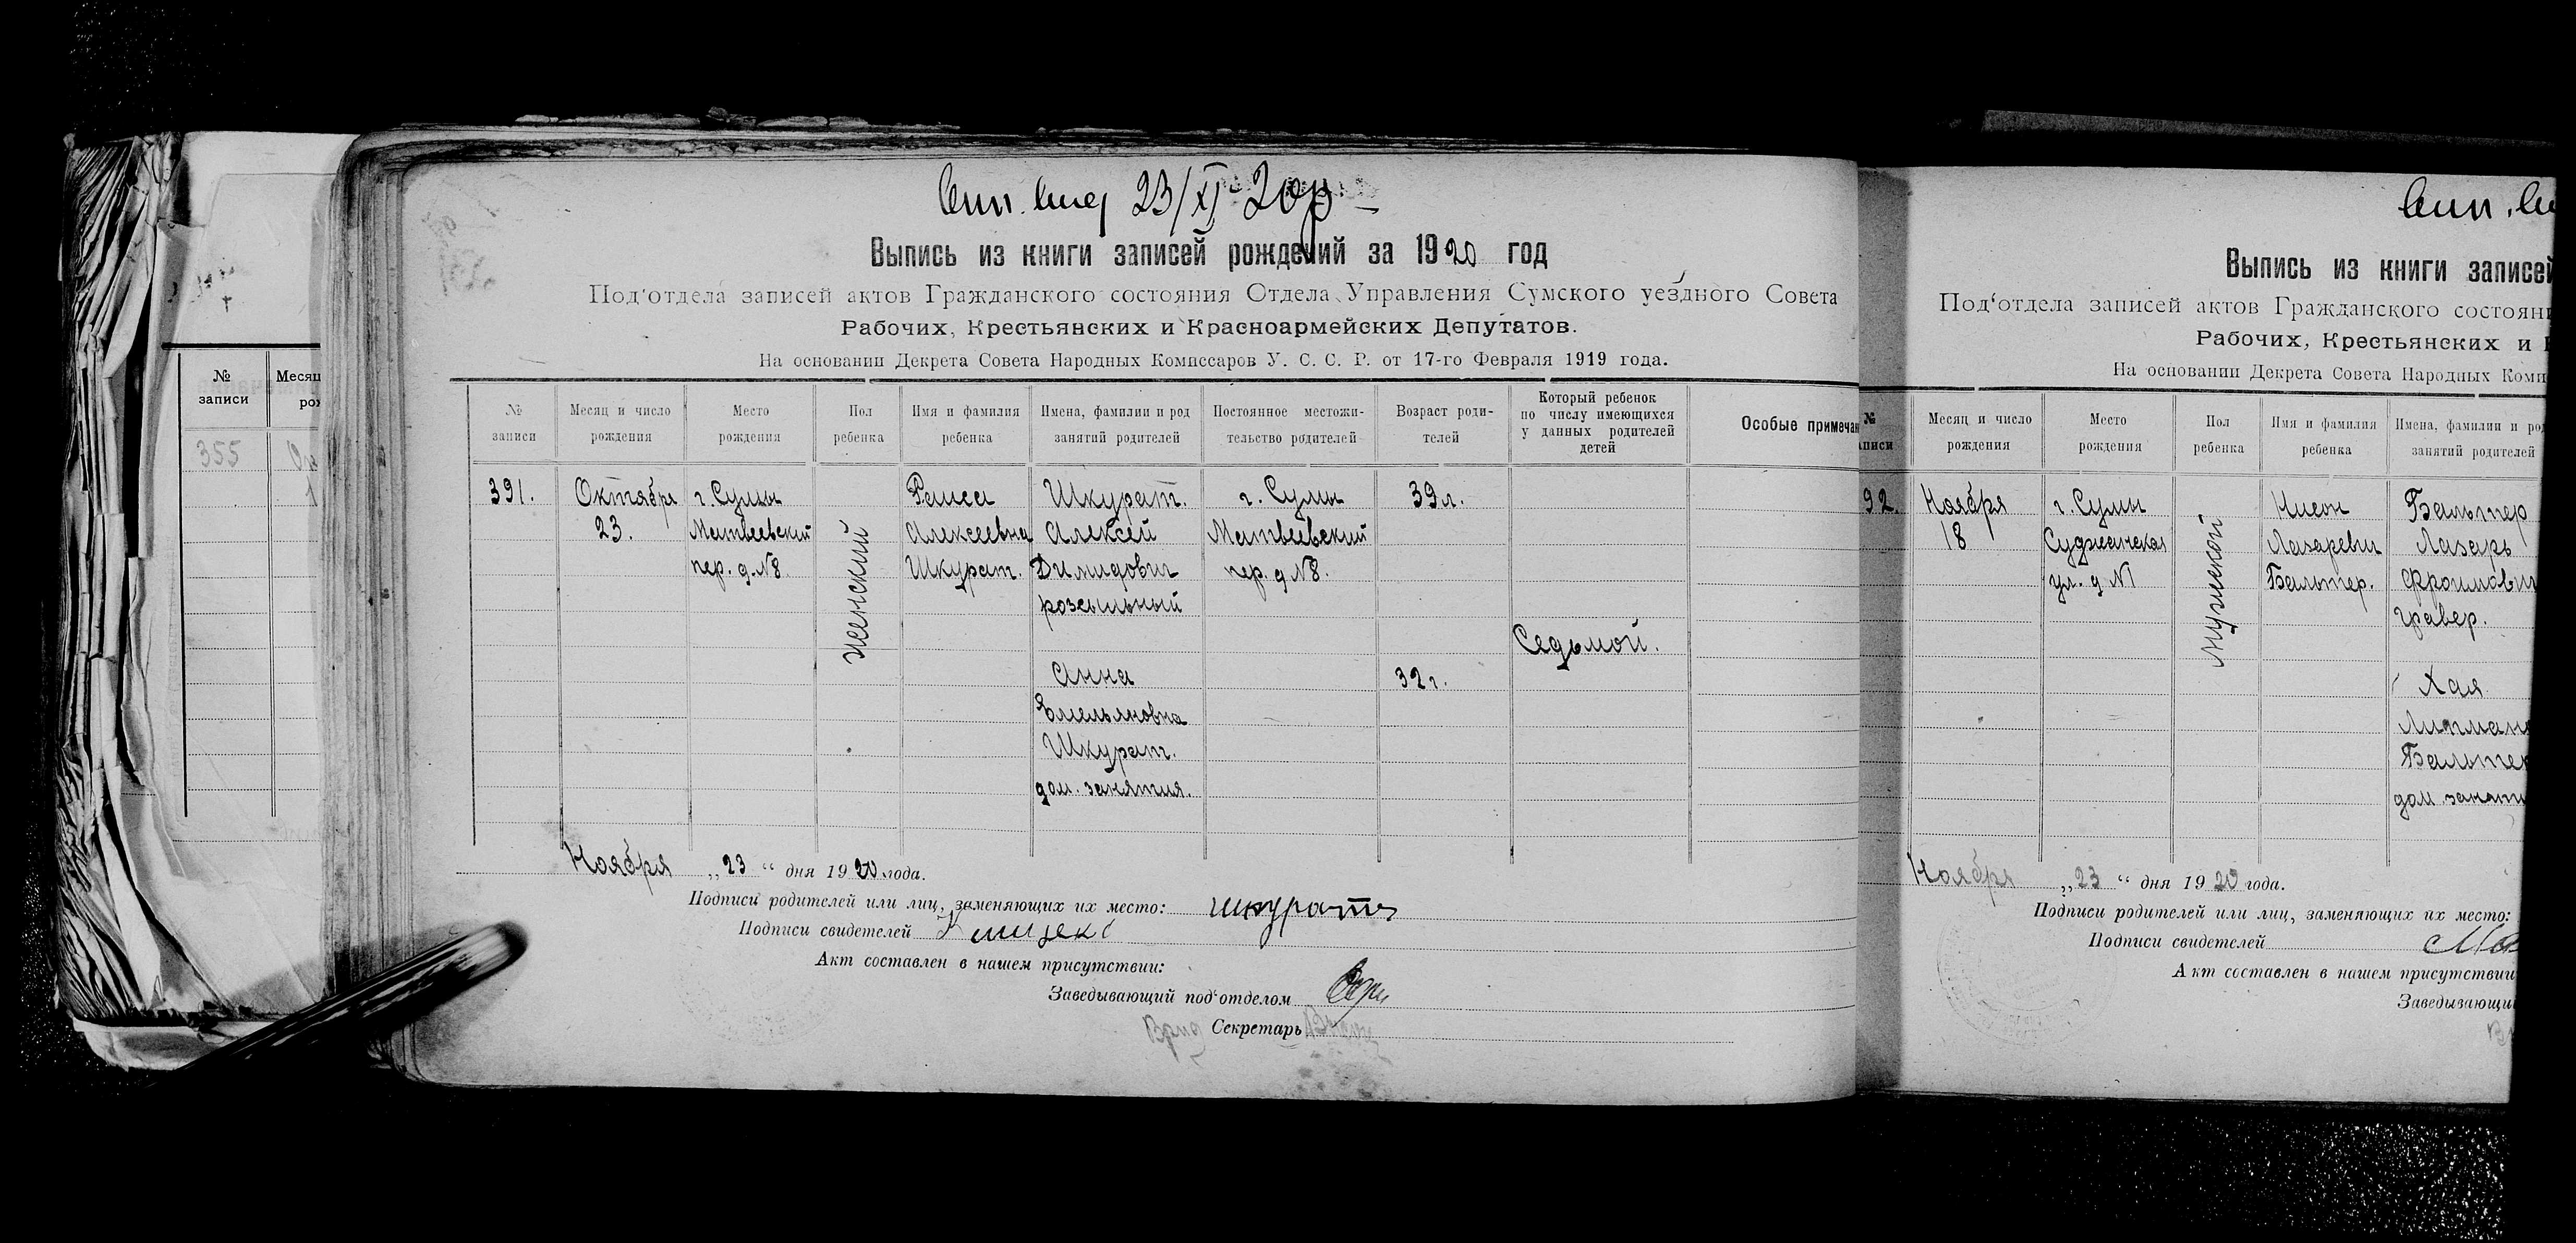 №
записи
Месяц
рож
355
23/XI 20
Выпись из книги записей рождений за 1920 год
Под'отдела записей актов Гражданского состояния Отдела Управления Сумского уездного Совета
Рабочих, Крестьянских и Красноармейских Депутатов.
На основании Декрета Совета Народных Комиссаров У. С. С. Р. от 17-го Февраля 1919 года.
№
записи
Месяц и число
рождения
Место
рождения
Пол
ребенка
Имя и фамилия
ребенка
Имена, фамилии и род
занятий родителей
Постоянное местожи-
тельство родителей
Возраст роди-
телей
Который ребенок
по числу имеющихся
у данных родителей
детей
Особые примечан
391.
Октября
23.
г. Сумы
Матвеевский
пер. д. №8
женский
Раиса
Алексеевна
Шкурат.
Шкурат.
Алексей
Димидович
розсыльный
Анна
Емельяновна
Шкурат.
дом. занятия.
г. Сумы
Матвеевский
пер. д №8.
39 л.
32 г.
Седьмой.
Ноября „23“ дня 1920 года.
Подписи родителей или лиц, заменяющих их место: Шкуратъ
Подписи свидетелей
Акт составлен в нашем присутствии:
Заведывающий под'отделом
Врид Секретарь
Выпись из книги записей
Под'отдела записей актов Гражданского состояни
Рабочих, Крестьянских и
На основании Декрета Совета Народных Коми
№
аписи
Месяц и число
рождения
Место
рождения
Пол
ребенка
Имя и фамилия
ребенка
Имена, фамилии и род
занятий родителей
92.
Ноября
18
г. Сумы
Суджанская
ул. д №1
мужеской
Нисон
Лазаревич
Бальтер.
Бальтер
Лазарь
Фроимович
гравер.
Хая
Липмано
Бальтер
дом. заняти
Ноября „23“ дня 1920 года.
Подписи родителей или лиц, заменяющих их место:
Подписи свидетелей
Акт составлен в нашем присутствии
Заведывающи